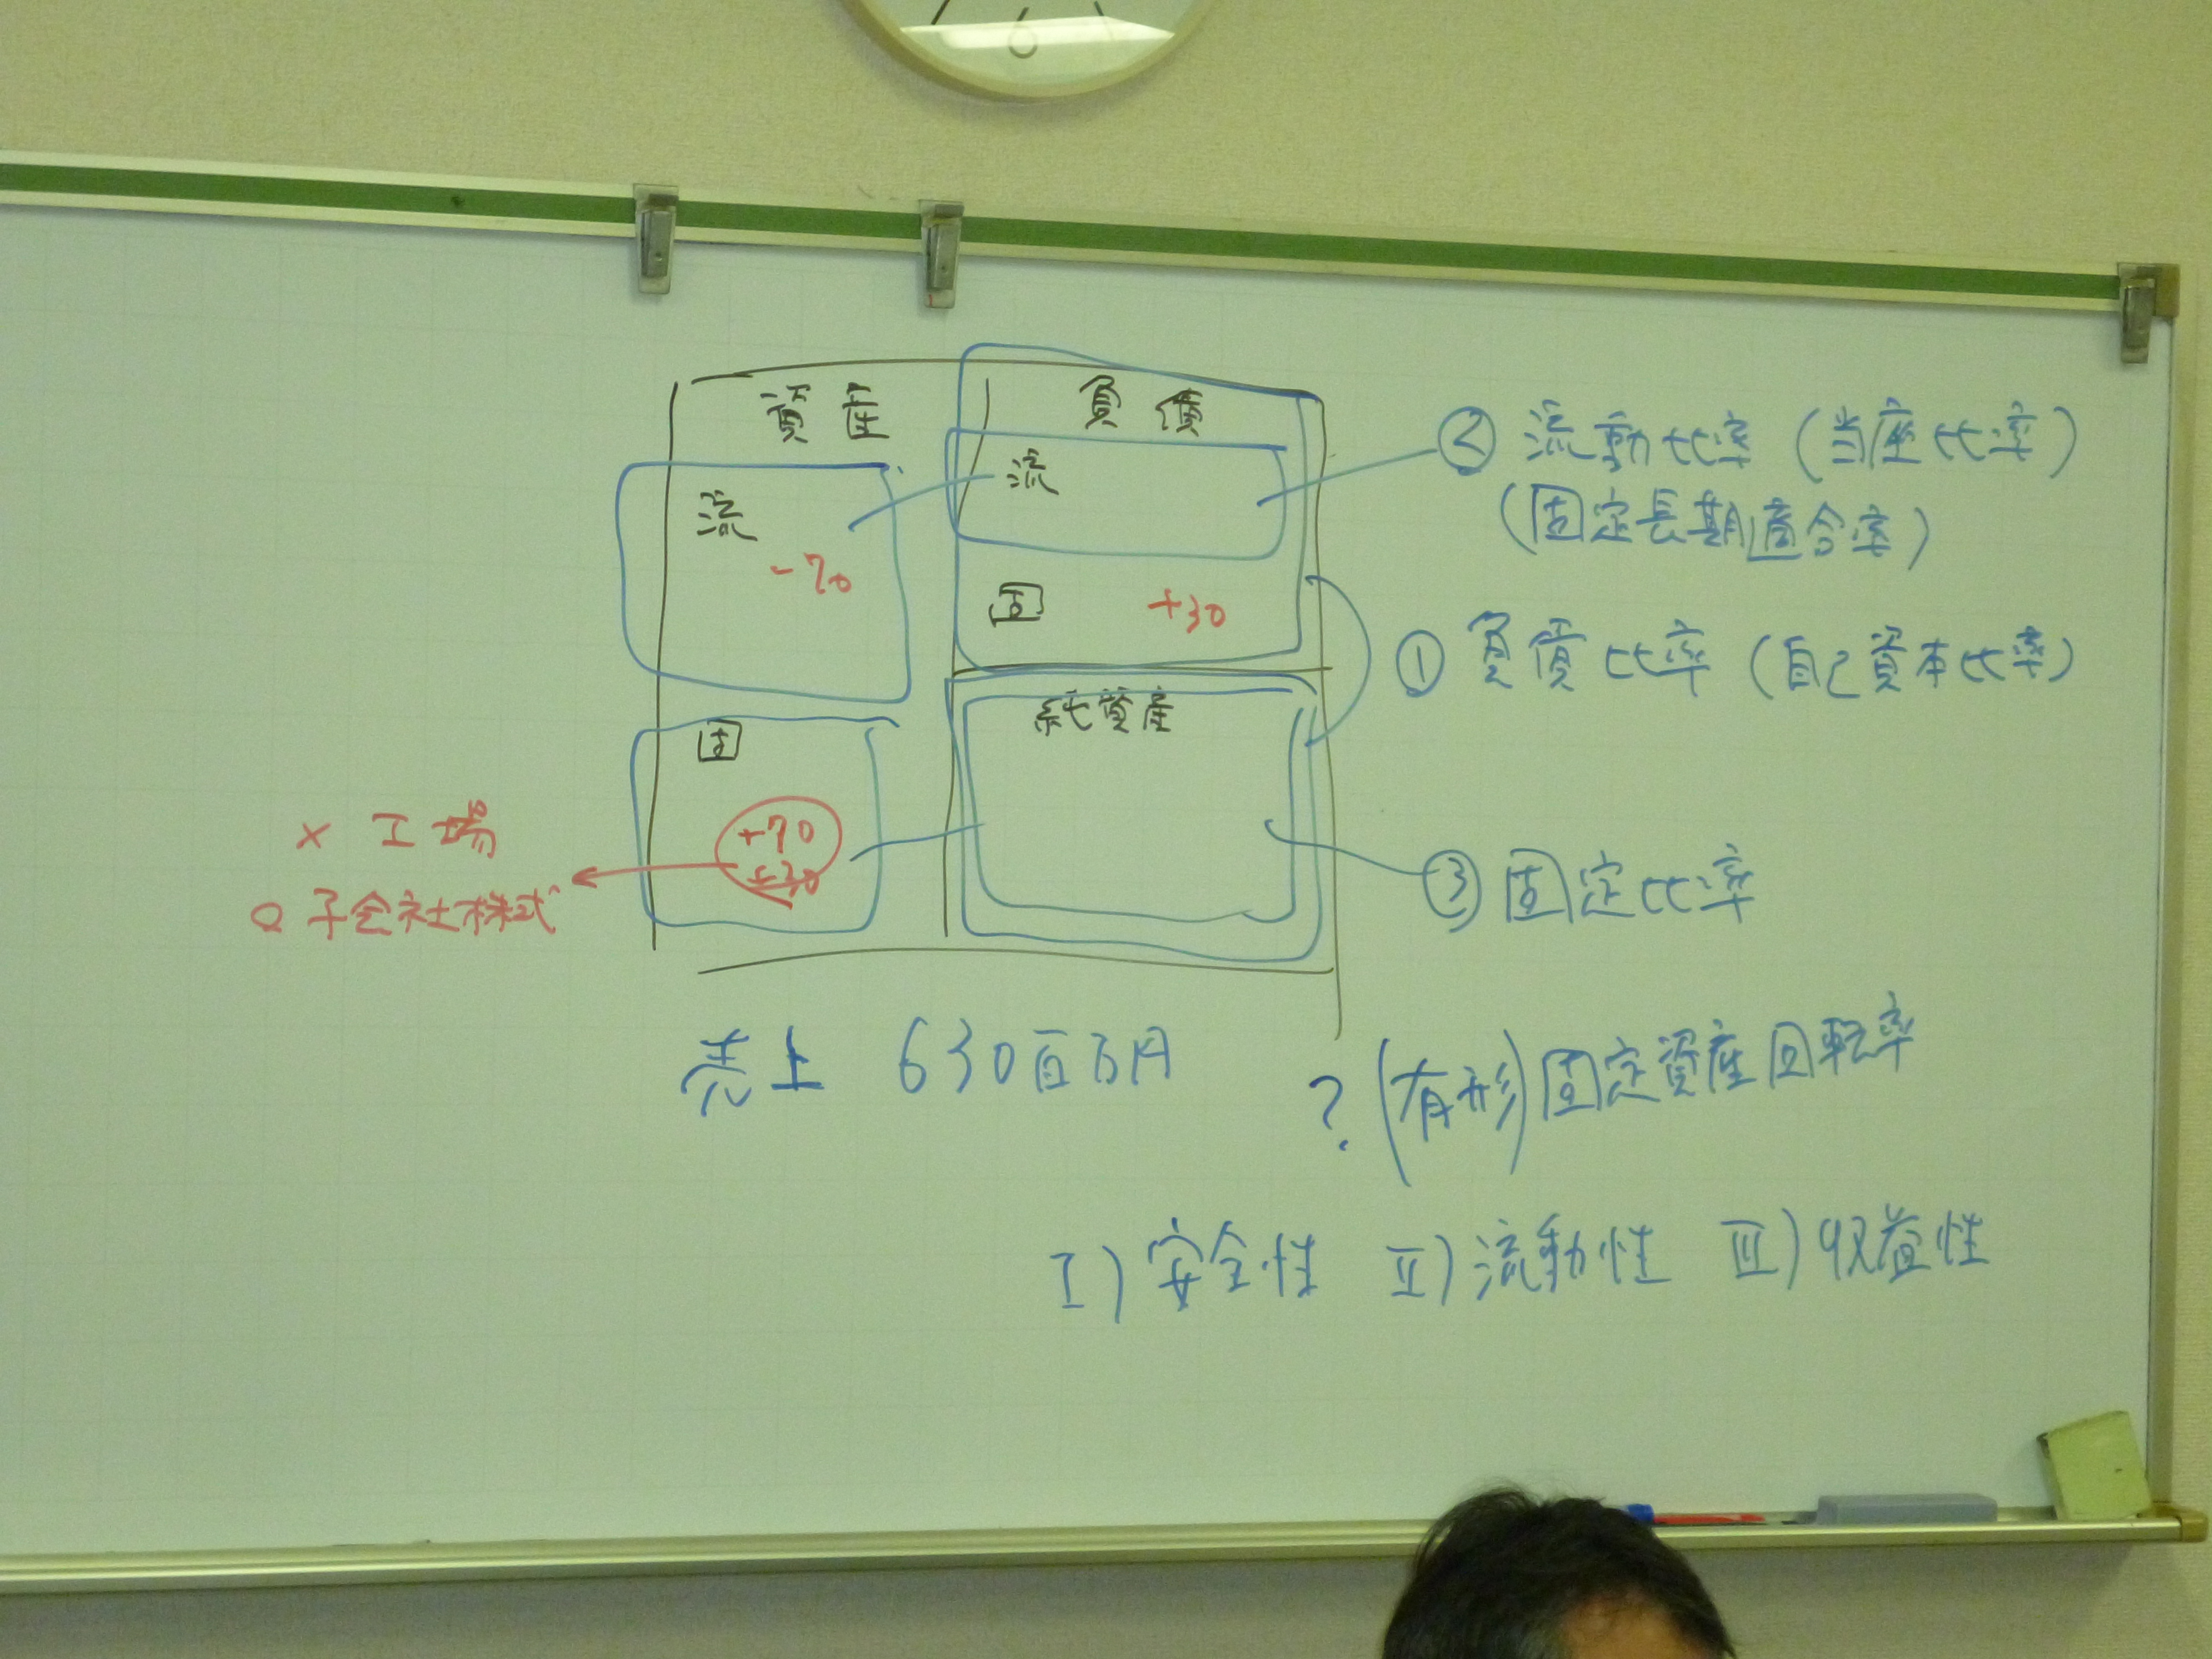 資産
負債
流
-70
流
固
+30
固
+70
+30
純資産
× 工場
○ 子会社株式
② 流動比率 (当座比率)
(固定長期適合率)
① 負債比率 (自己資本比率)
③ 固定比率
売上 630百万円
? (有形) 固定資産回転率
Ⅰ) 安全性 Ⅱ) 流動性 Ⅲ) 収益性
6